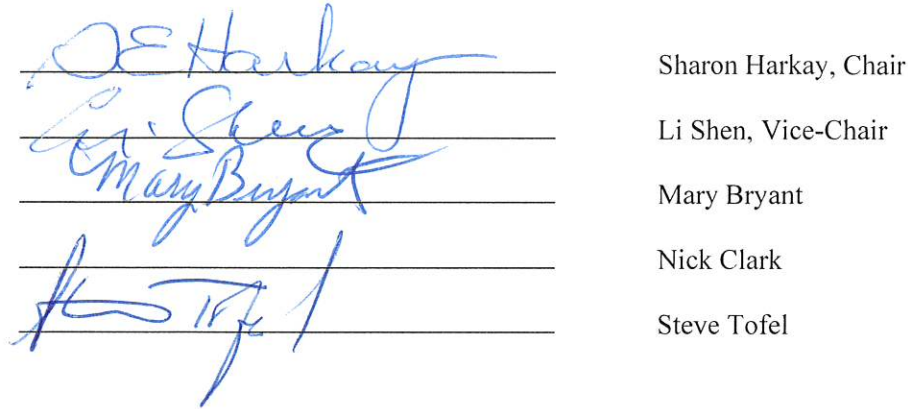 SE Harkay Sharon Harkay, Chair
Li Shen Li Shen, Vice-Chair
Mary Bryant Mary Bryant
Nick Clark
Steve Tofel Steve Tofel